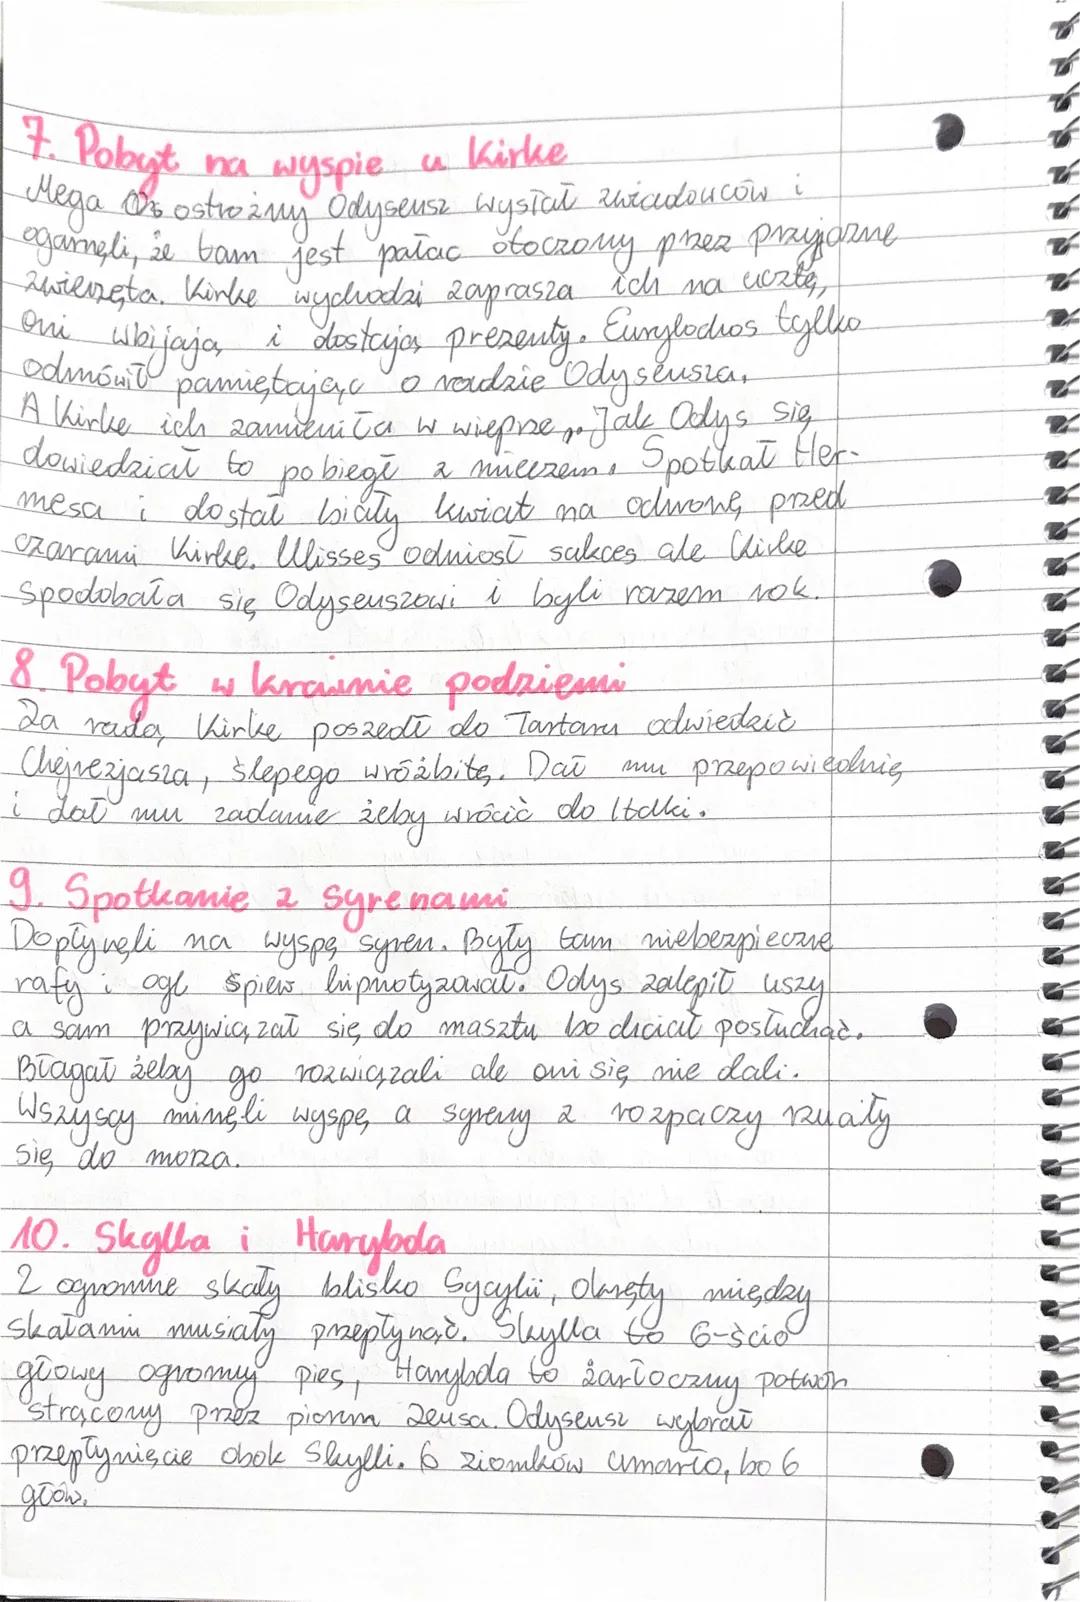 7. Pobyt na wyspie u Kirke
Mega ostrożny Odyseusz wysłał zwiadowców i
ogarnęli, że tam jest pałac otoczony przez przyjazne
zwierzęta. Kirke wychodzi zaprasza ich na ucztę,
oni wbijają i dostają prezenty. Eurylochos tylko
odmówił pamiętając o radzie Odyseusza.
A Kirke ich zamieniła w wieprze. Jak Odys się
dowiedział to pobiegł z mieczem. Spotkał Her-
mesa i dostał biały kwiat na ochronę przed
czarami Kirke. Ulisses odniosł sukces ale Kirke
spodobała się Odyseuszowi i byli razem rok.
8. Pobyt w krainie podziemi
Za radą Kirke poszedł do Tartaru odwiedzić
Chejrezjasza, ślepego wróżbitę. Dał mu przepowiednię
i dał mu zadanie żeby wrócić do Itaki.
9. Spotkanie z syrenami
Dopłynęli na wyspę syren. Były tam niebezpieczne
rafy i ogl śpiew hipnotyzował. Odys zalepił uszy
a sam przywiązał się do masztu bo chciał posłuchać.
Błagał żeby go rozwiązali ale oni się nie dali.
Wszyscy minęli wyspę a syreny z rozpaczy rzuały
się do morza.
10. Skylla i Harybda
2 ogromne skały blisko Sycylii, Okręty między
skałami musiały przepłynąć. Skylla to 6-ścio
głowy ogromny pies, Harybda to żarłoczny potwór
strącony przez piorun Zeusa. Odyseusz wybrał
przepłynięcie obok Skylli. 6 ziomków umarło, bo 6
głów.